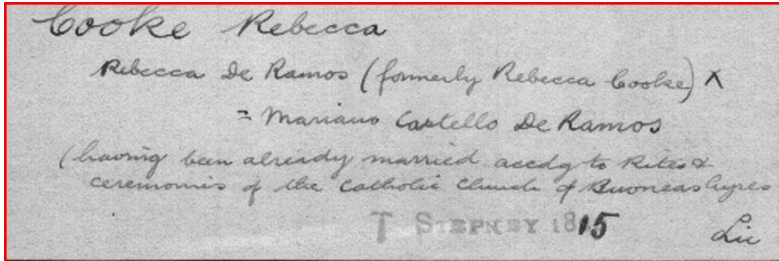 Cooke Rebecca
Rebecca De Ramos (formerly Rebecca Cooke) X
= Mariano Castello De Ramos
(having been already married accdg to Rites &
ceremonies of the Catholic Church of Buoneas Ayres
T STEPNEY 1815
Lic